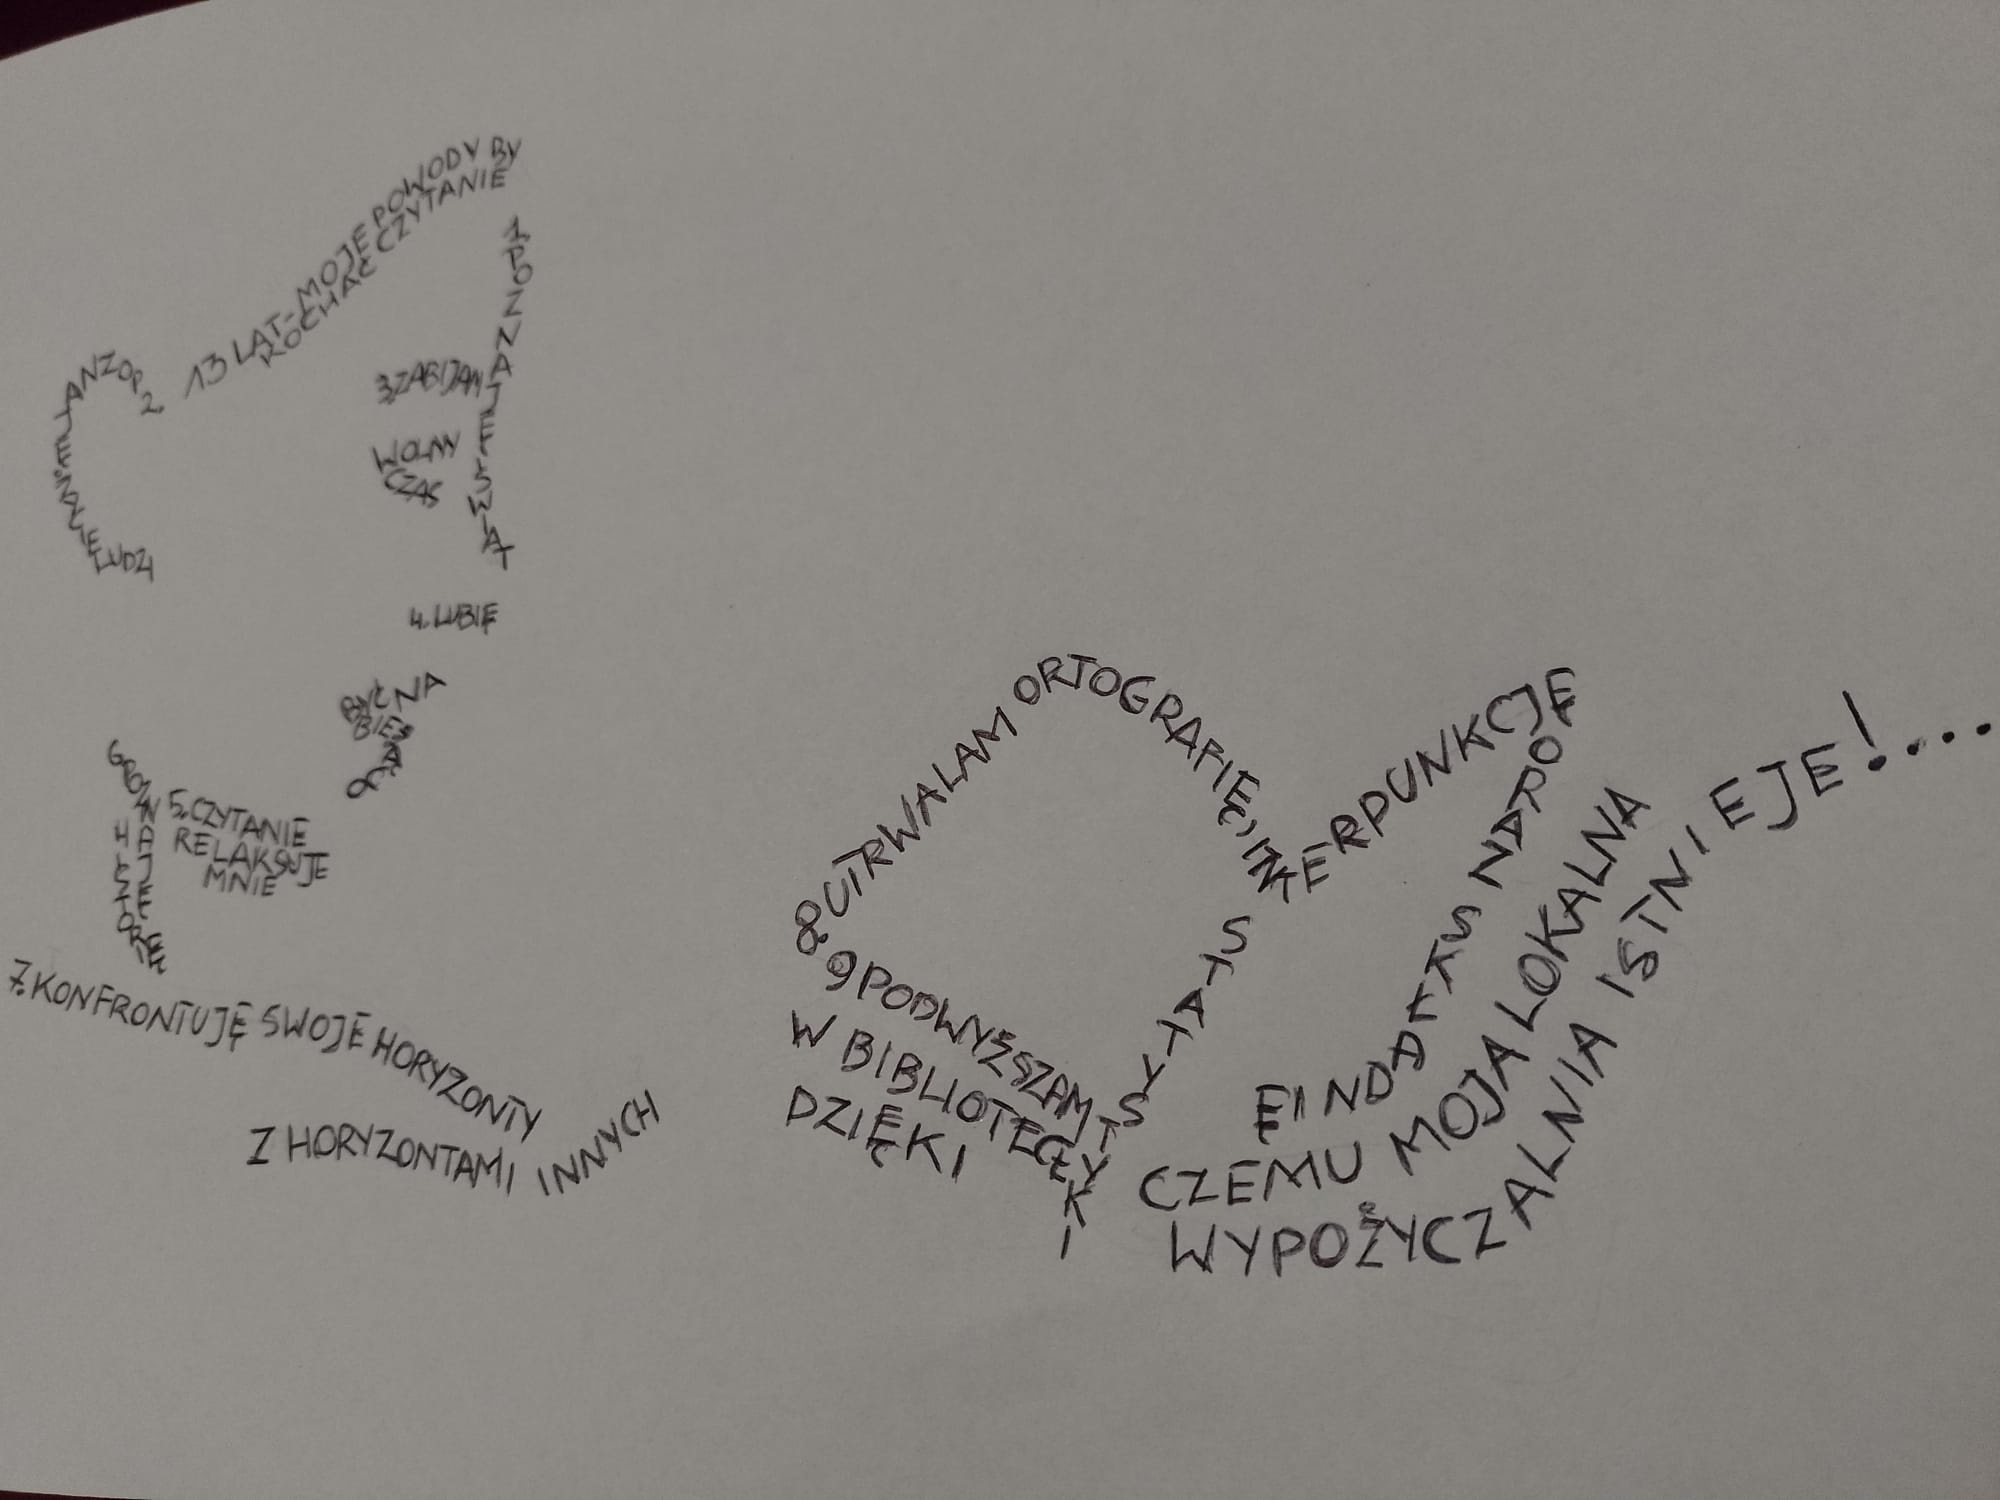 13 LAT - MOJE POWODY BY
KOCHAĆ CZYTANIE
1. POZNAJĘ ŚWIAT
2. POZNAJĘ
LUDZI
3. ZABIJAM
WOLNY
CZAS
4. LUBIĘ
BYĆ NA
BIEŻ
ĄCO
5. CZYTANIE
RELAKSUJE
MNIE
6 POZNAJĘ
HISTORIĘ
7. KONFRONTUJĘ SWOJE HORYZONTY
Z HORYZONTAMI INNYCH
8 UTRWALAM ORTOGRAFIĘ, INTERPUNKCJĘ
9 PODWYŻSZAM STATYSTYKI
W BIBLIOTECE
DZIĘKI
CZEMU MOJA LOKALNA
WYPOŻYCZALNIA ISTNIEJE!...